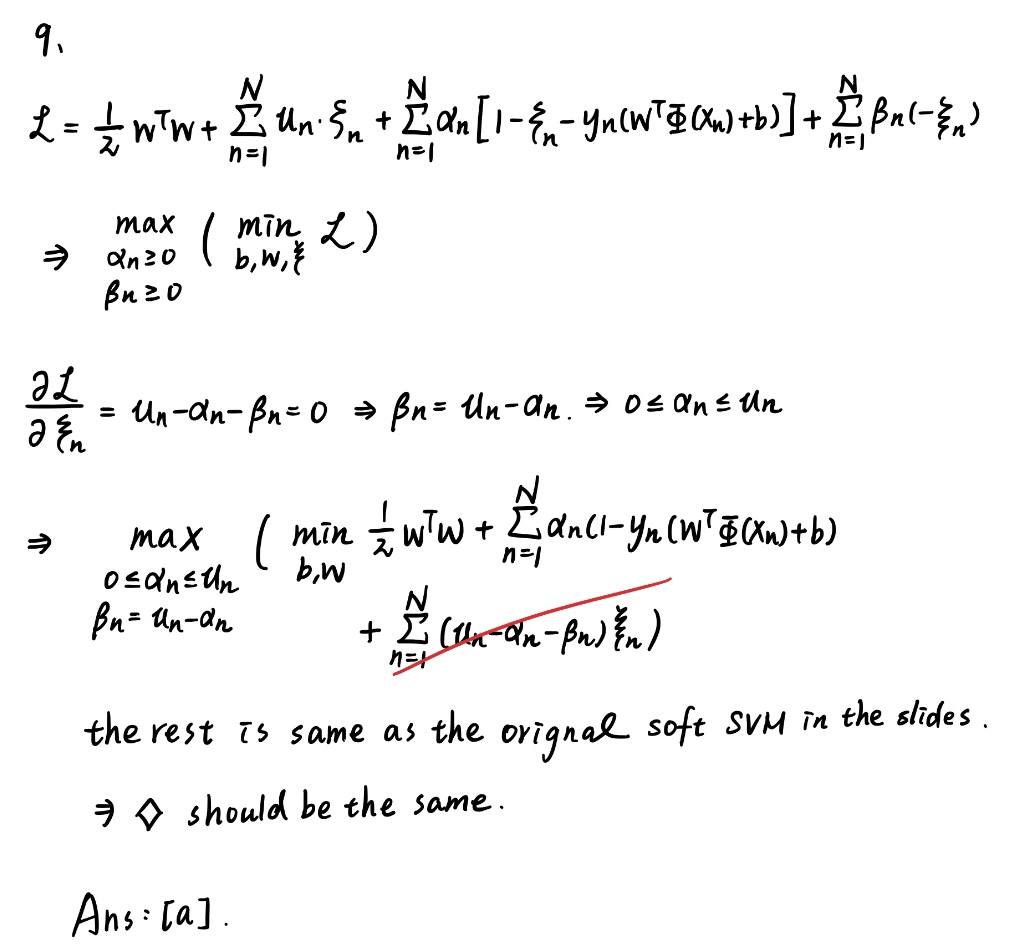 9.
ℒ = 1/2 wᵀw + Σ_{n=1}^{N} uₙ·ξₙ + Σ_{n=1}^{N} αₙ[1-ξₙ-yₙ(wᵀΦ(xₙ)+b)] + Σ_{n=1}^{N} βₙ(-ξₙ)
⇒ max_{αₙ≥0, βₙ≥0} ( min_{b,w,ξ} ℒ )
∂ℒ/∂ξₙ = uₙ-αₙ-βₙ = 0 ⇒ βₙ = uₙ-αₙ. ⇒ 0 ≤ αₙ ≤ uₙ
⇒ max_{0≤αₙ≤uₙ, βₙ=uₙ-αₙ} ( min_{b,w} 1/2 wᵀw + Σ_{n=1}^{N} αₙ(1-yₙ(wᵀΦ(xₙ)+b)
+ Σ_{n=1}^{N} (uₙ-αₙ-βₙ)ξₙ )
the rest is same as the orignal soft SVM in the slides.
⇒ ◇ should be the same.
Ans: [a].